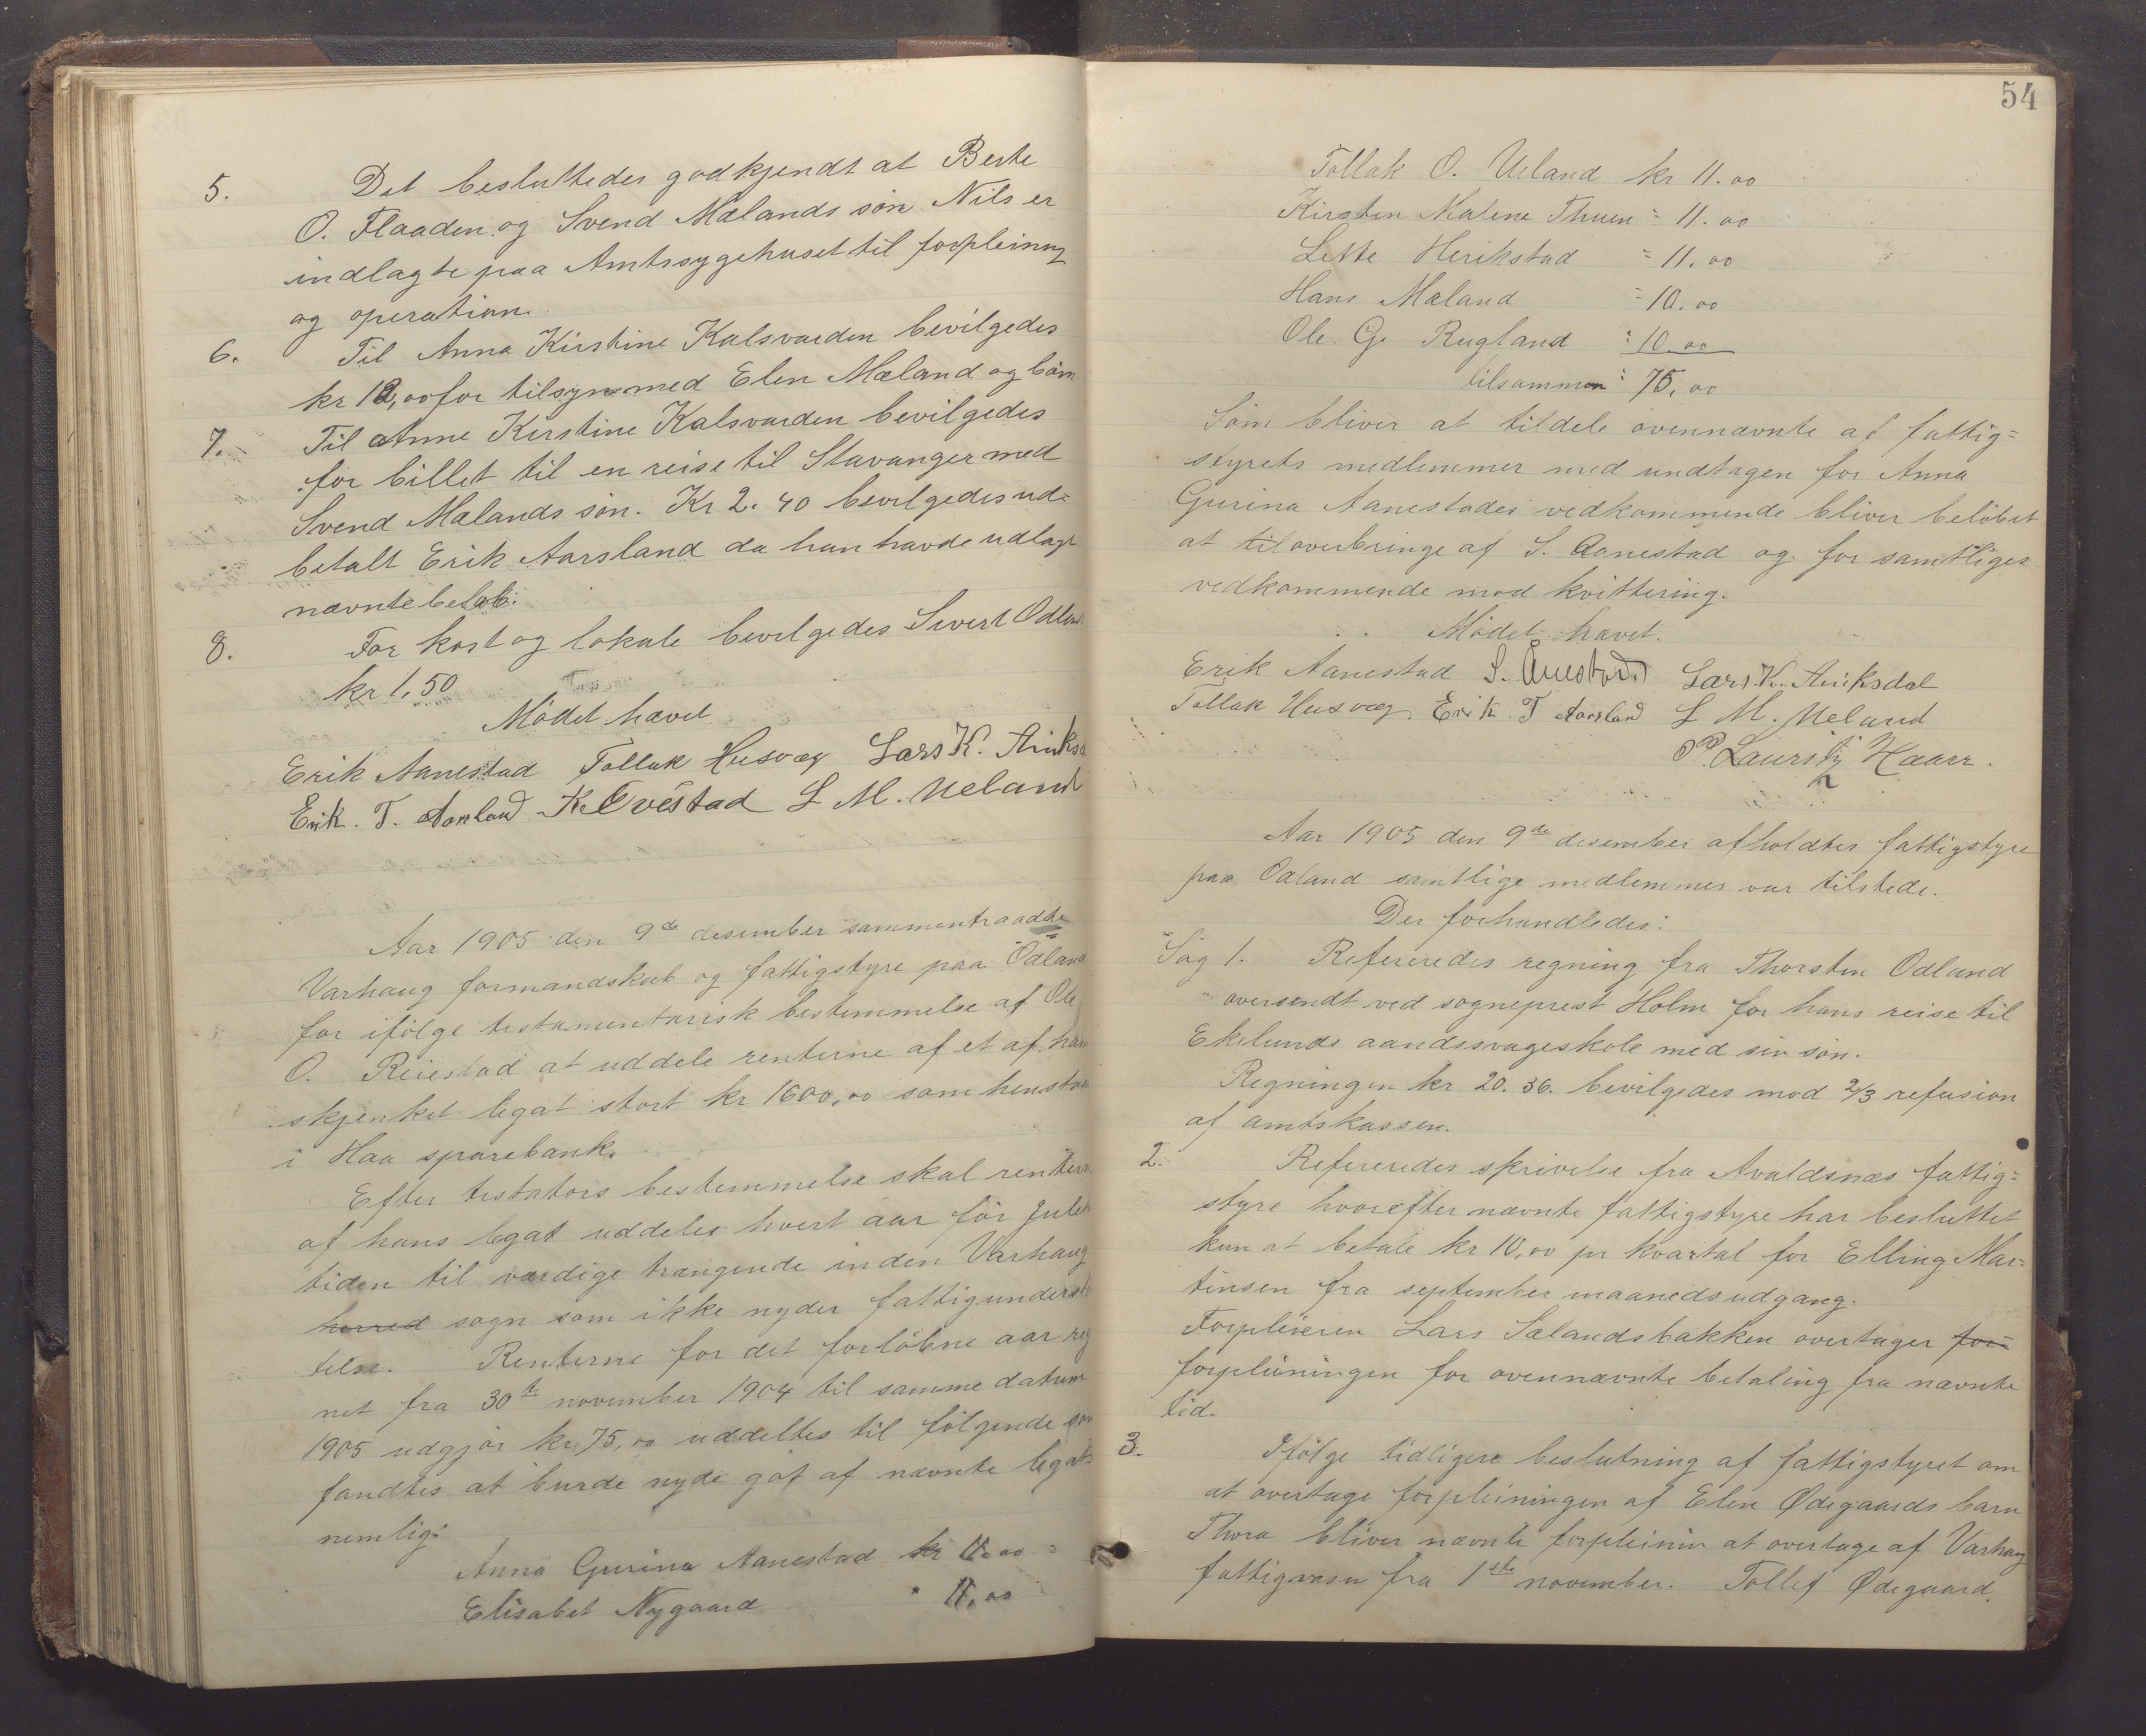 5. Det besluttedes godkjendt at Berte
O. Flaaden og Svend Mælands søn Nils er
indlagte paa Amtssygehuset til forpleining
og operation.
6. Til Anna Kirstine Kalsvæden bevilgedes
kr 12,00 for tilsyn med Elen Mæland og børn
7. Til Anne Kirstine Kalsvarden bevilgedes
for billet til en reise til Stavanger med
Svend Mælands søn. Kr 2.40 bevilgedes ud-
betalt Erik Aarsland da han havde udlagt
nævnte beløb.
8. For kost og lokale bevilgedes Sivert Odland
kr 1,50
Mødet hævet
Erik Aanestad Tollak Husvæg Lars K. Auks
Erik. T. Aarsland K. Evestad L M. Ueland
Aar 1905 den 9de desember sammentraadte
Varhaug formandskab og fattigstyre paa Ødland
for ifølge testamentarisk bestemmelse af Ole
O. Reiestad at uddele renterne af et af ham
skjenket legat stort kr 1600,00 som henstaar
i Haa sparebank.
Efter testators bestemmelse skal renterne
af hans legat uddeles hvert aar før Jule-
tiden til værdige trængende inden Varhaug
herred sogn som ikke nyder fattigunderstø
telse. Renterne for det forløbne aar reg
net fra 30te november 1904 til samme datum
1905 udgjør kr 75,00 uddeltes til følgende som
fandtes at burde nyde gof af nævnte legat
nemlig:
Anna Gurina Aanestad kr 11.00
Elisabet Nygaard " 11,00
54
Tollak O. Ueland kr 11.00
Kirsten Malene Thuen = 11.00
Lette Herikstad = 11.00
Hans Mæland = 10.00
Ole G. Rugland : 10.00
tilsammen : 75,00
Som bliver at tildele ovennævnte af fattig=
styrets medlemmer med undtagen for Anna
Gurina Aanestades vedkommende bliver beløbet
at til overbringe af S. Aanestad og for samtliges
vedkommende mod kvittering.
Mødet hævet.
Erik Aanestad S. Ånestad Lars K. Auksdal
Tollak Husvæg Erik. T Aarsland L M. Ueland
P. Lauritz Haarr.
Aar 1905 den 9de desember afholdtes fattigstyre
paa Odland samtlige medlemmer var tilstede.
Der forhandledes:
Sag 1. Refereredes regning fra Thorsten Odland
oversendt ved sogneprest Holm for hans reise til
Ekelunds aandssvageskole med sin søn.
Regningen kr 20.36. bevilgedes mod 2/3 refusion
af amtskassen.
2. Refereredes skrivelse fra Avaldsnæs fattig=
styre hvorefter nævnte fattigstyre har besluttet
kun at betale kr 10,00 pr kvartal for Elling Mar=
tinsen fra september maanedsudgang.
Forpleieren Lars Sælandsbakken overtager for-
forpleiningen for ovennævnte betaling fra nævnte
tid.
3. Ifølge tidligere beslutning af fattigstyret om
at overtage forpleiningen af Elen Ødegaards barn
Thora bliver nævnte forpleinin at overtage af Varhaug
fattigvæsn fra 1ste november. Tollef Ødegaard.